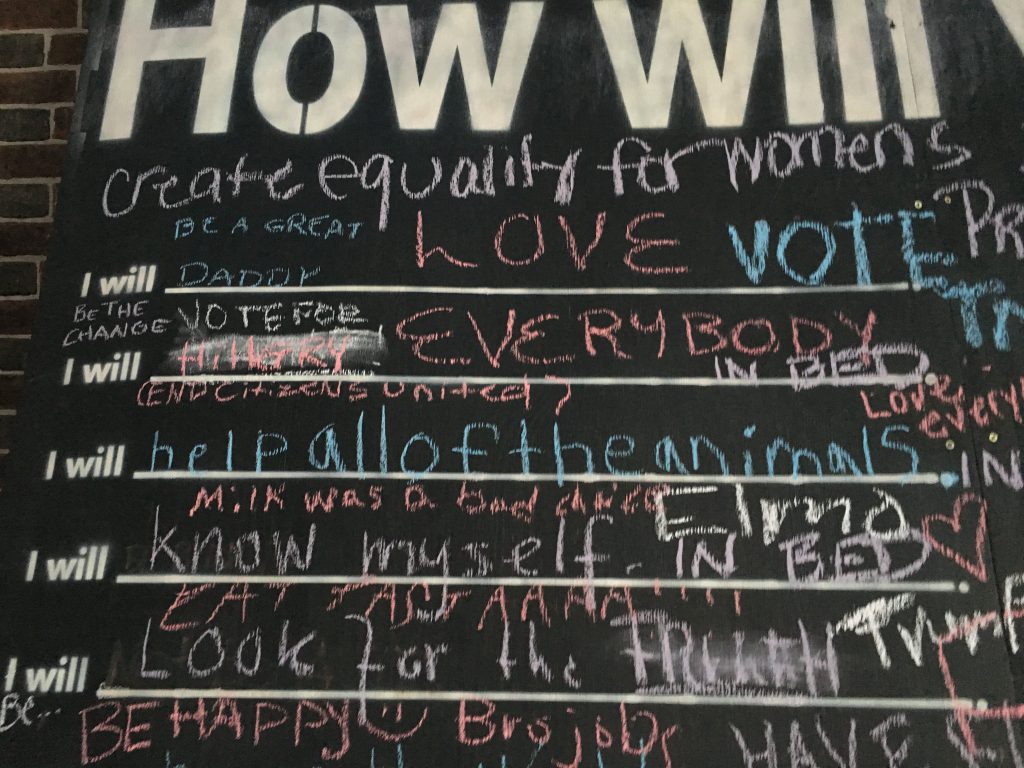 How will
create equality for womens
BE A GREAT LOVE VOTE
I will DADDY
BE THE CHANGE VOTE FOR EVERYBODY
I will HILLARY IN BED
(END CITIZENS UNITED) Love
I will help all of the animals IN
Milk was a bad Elmo
I will know myself. IN BED
EAT
I will Look for the TRUTH
BE... BE HAPPY Brojobs HAVE